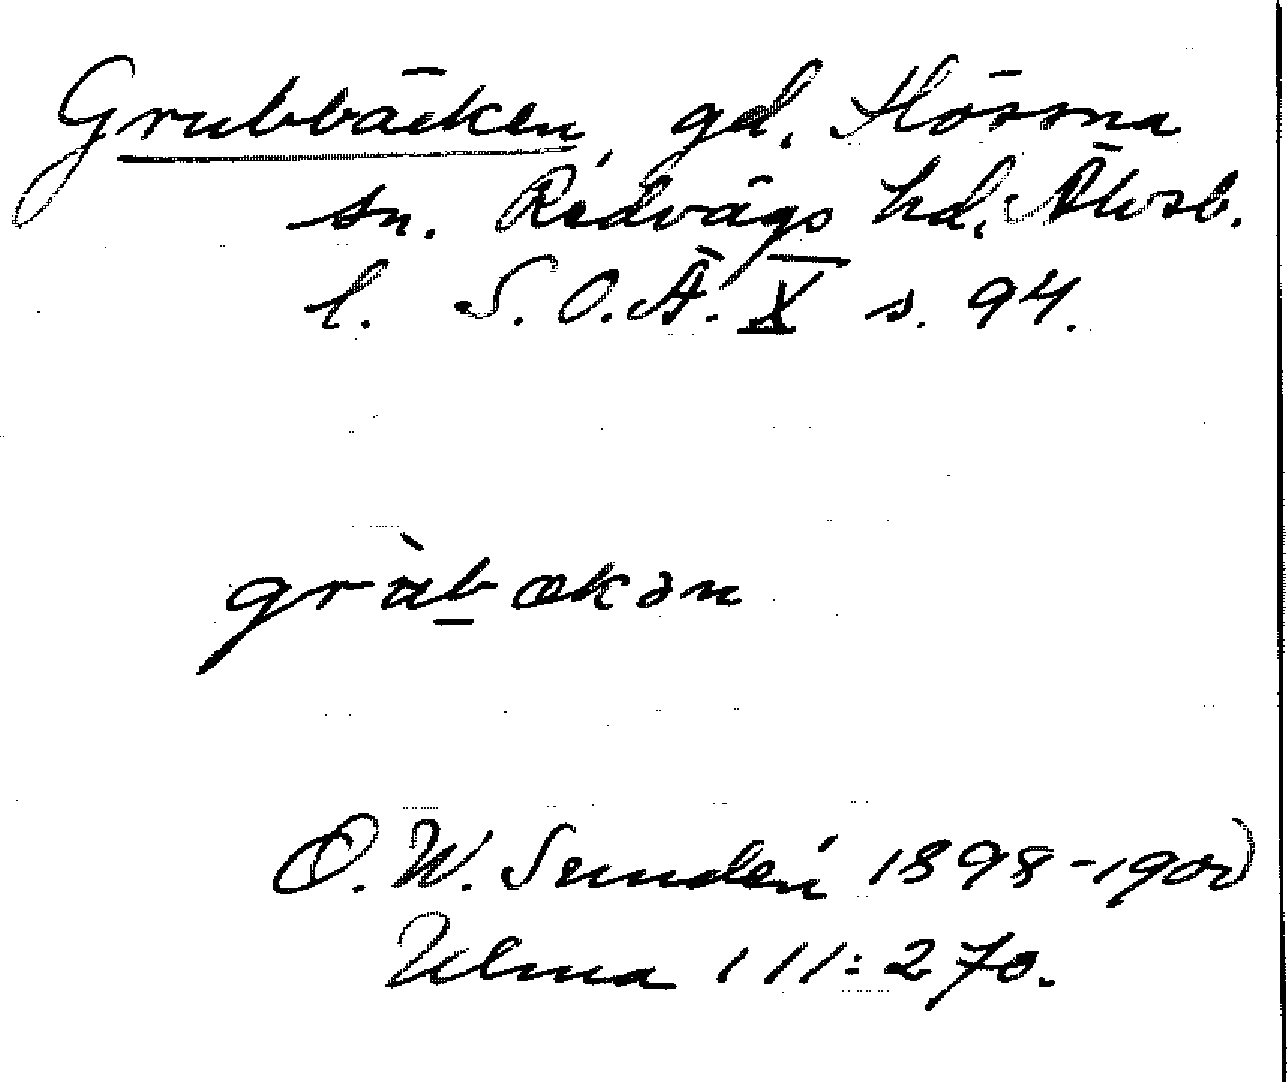 Grubbäcken, gd. Hössna
sn. Redvägs hd. Älvsb.
l. S.O.Ä. X s. 94.
gràbækən
O.W. Sundén 1898-1900
Ulma 111:270.